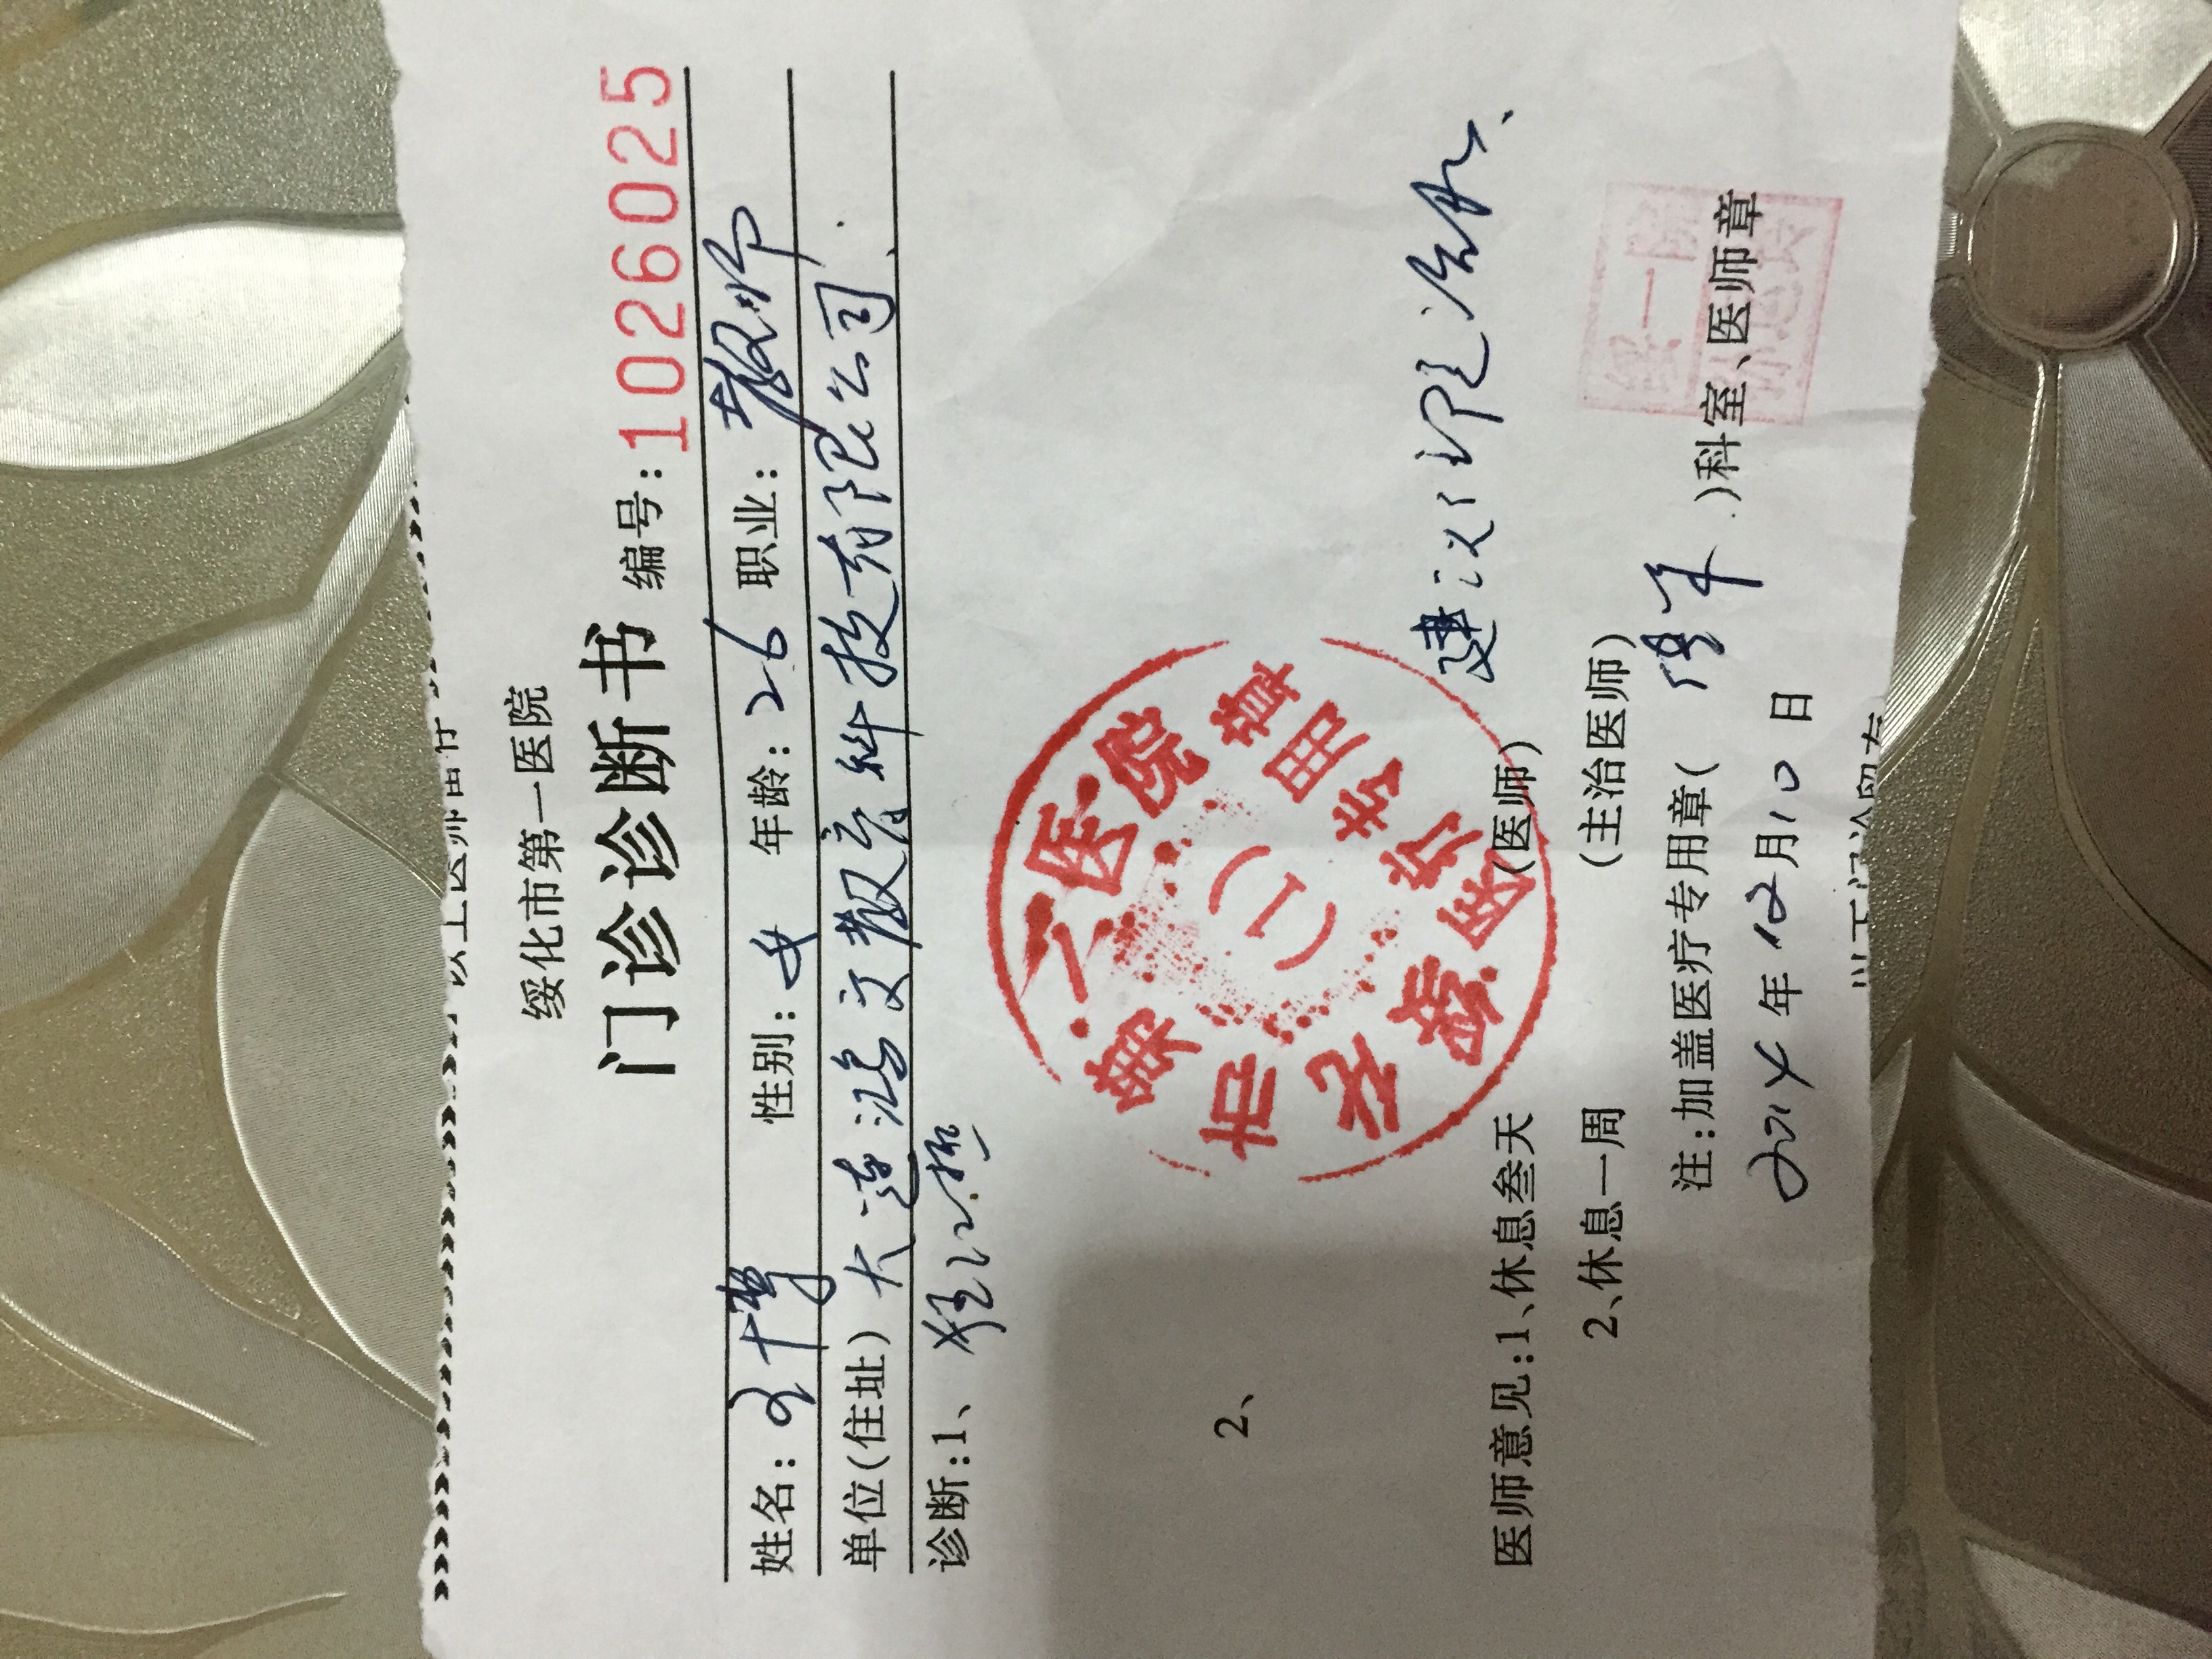 以上医师留存
绥化市第一医院
门诊诊断书 编号:1026025
姓名:王博 性别:女 年龄:26 职业:教师
单位(住址)大连鸿文教育科技有限公司.
诊断:1、
绥化市第一医院
(1)
医疗专用章
2、
建议住院治疗、
医师意见:1、休息叁天 (医师)
2、休息一周 (主治医师)
注:加盖医疗专用章( )科室、医师章
绥一院
2014年12月10日
以下门诊留存